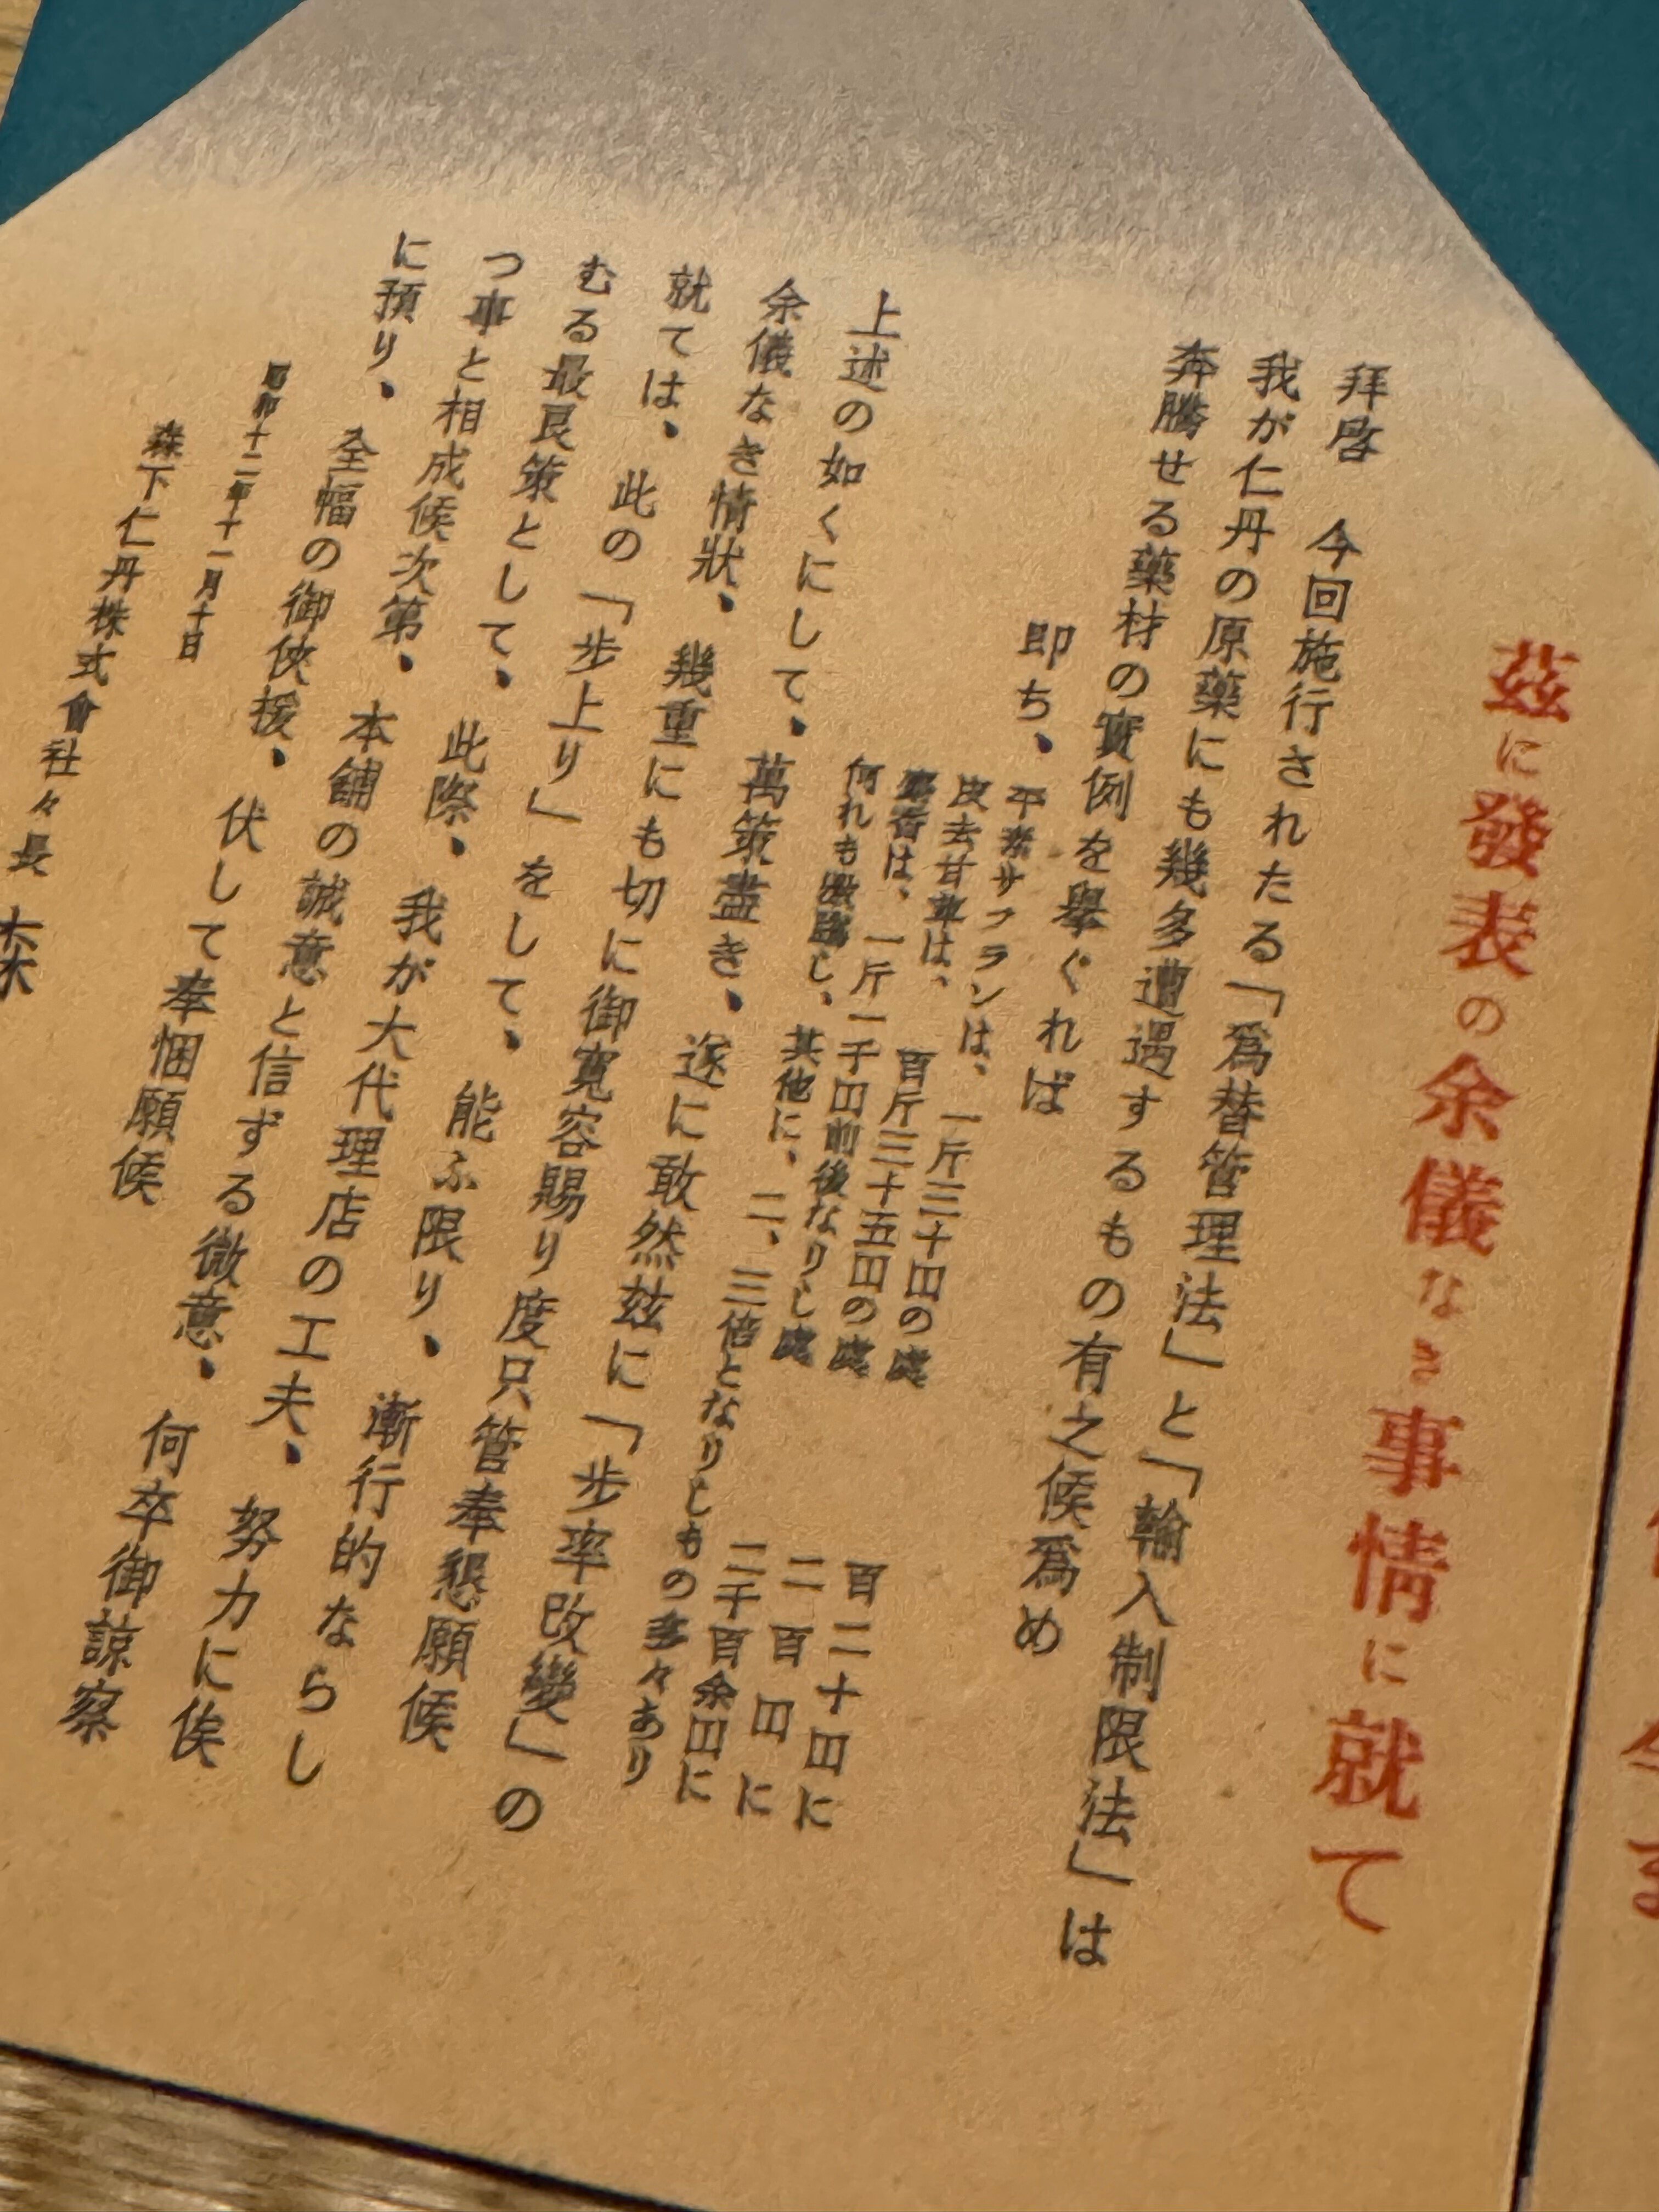 茲に發表の余儀なき事情に就て
拝啓　今回施行されたる「爲替管理法」と「輸入制限法」は
我が仁丹の原藥にも幾多遭遇するもの有之候爲め
奔騰せる藥材の實例を擧ぐれば
即ち、平素サフランは、一斤三十円の處　百二十円に
皮去甘草は、百斤三十五円の處　二百円に
麝香は、一斤一千円前後なりし處　二千百余円に
何れも激騰し、其他に、二、三倍となりしもの多々あり
上述の如くにして、萬策盡き、遂に敢然玆に「步率改變」の
余儀なき情狀、幾重にも切に御寬容賜り度只管奉懇願候
就ては、此の「步上り」をして、能ふ限り、漸行的ならし
むる最良策として、此際、我が大代理店の工夫、努力に俟
つ事と相成候次第、本舖の誠意と信ずる微意、何卒御諒察
に預り、全幅の御俠援、伏して奉悃願候
昭和十二年十一月十日
森下仁丹株式會社々長　森